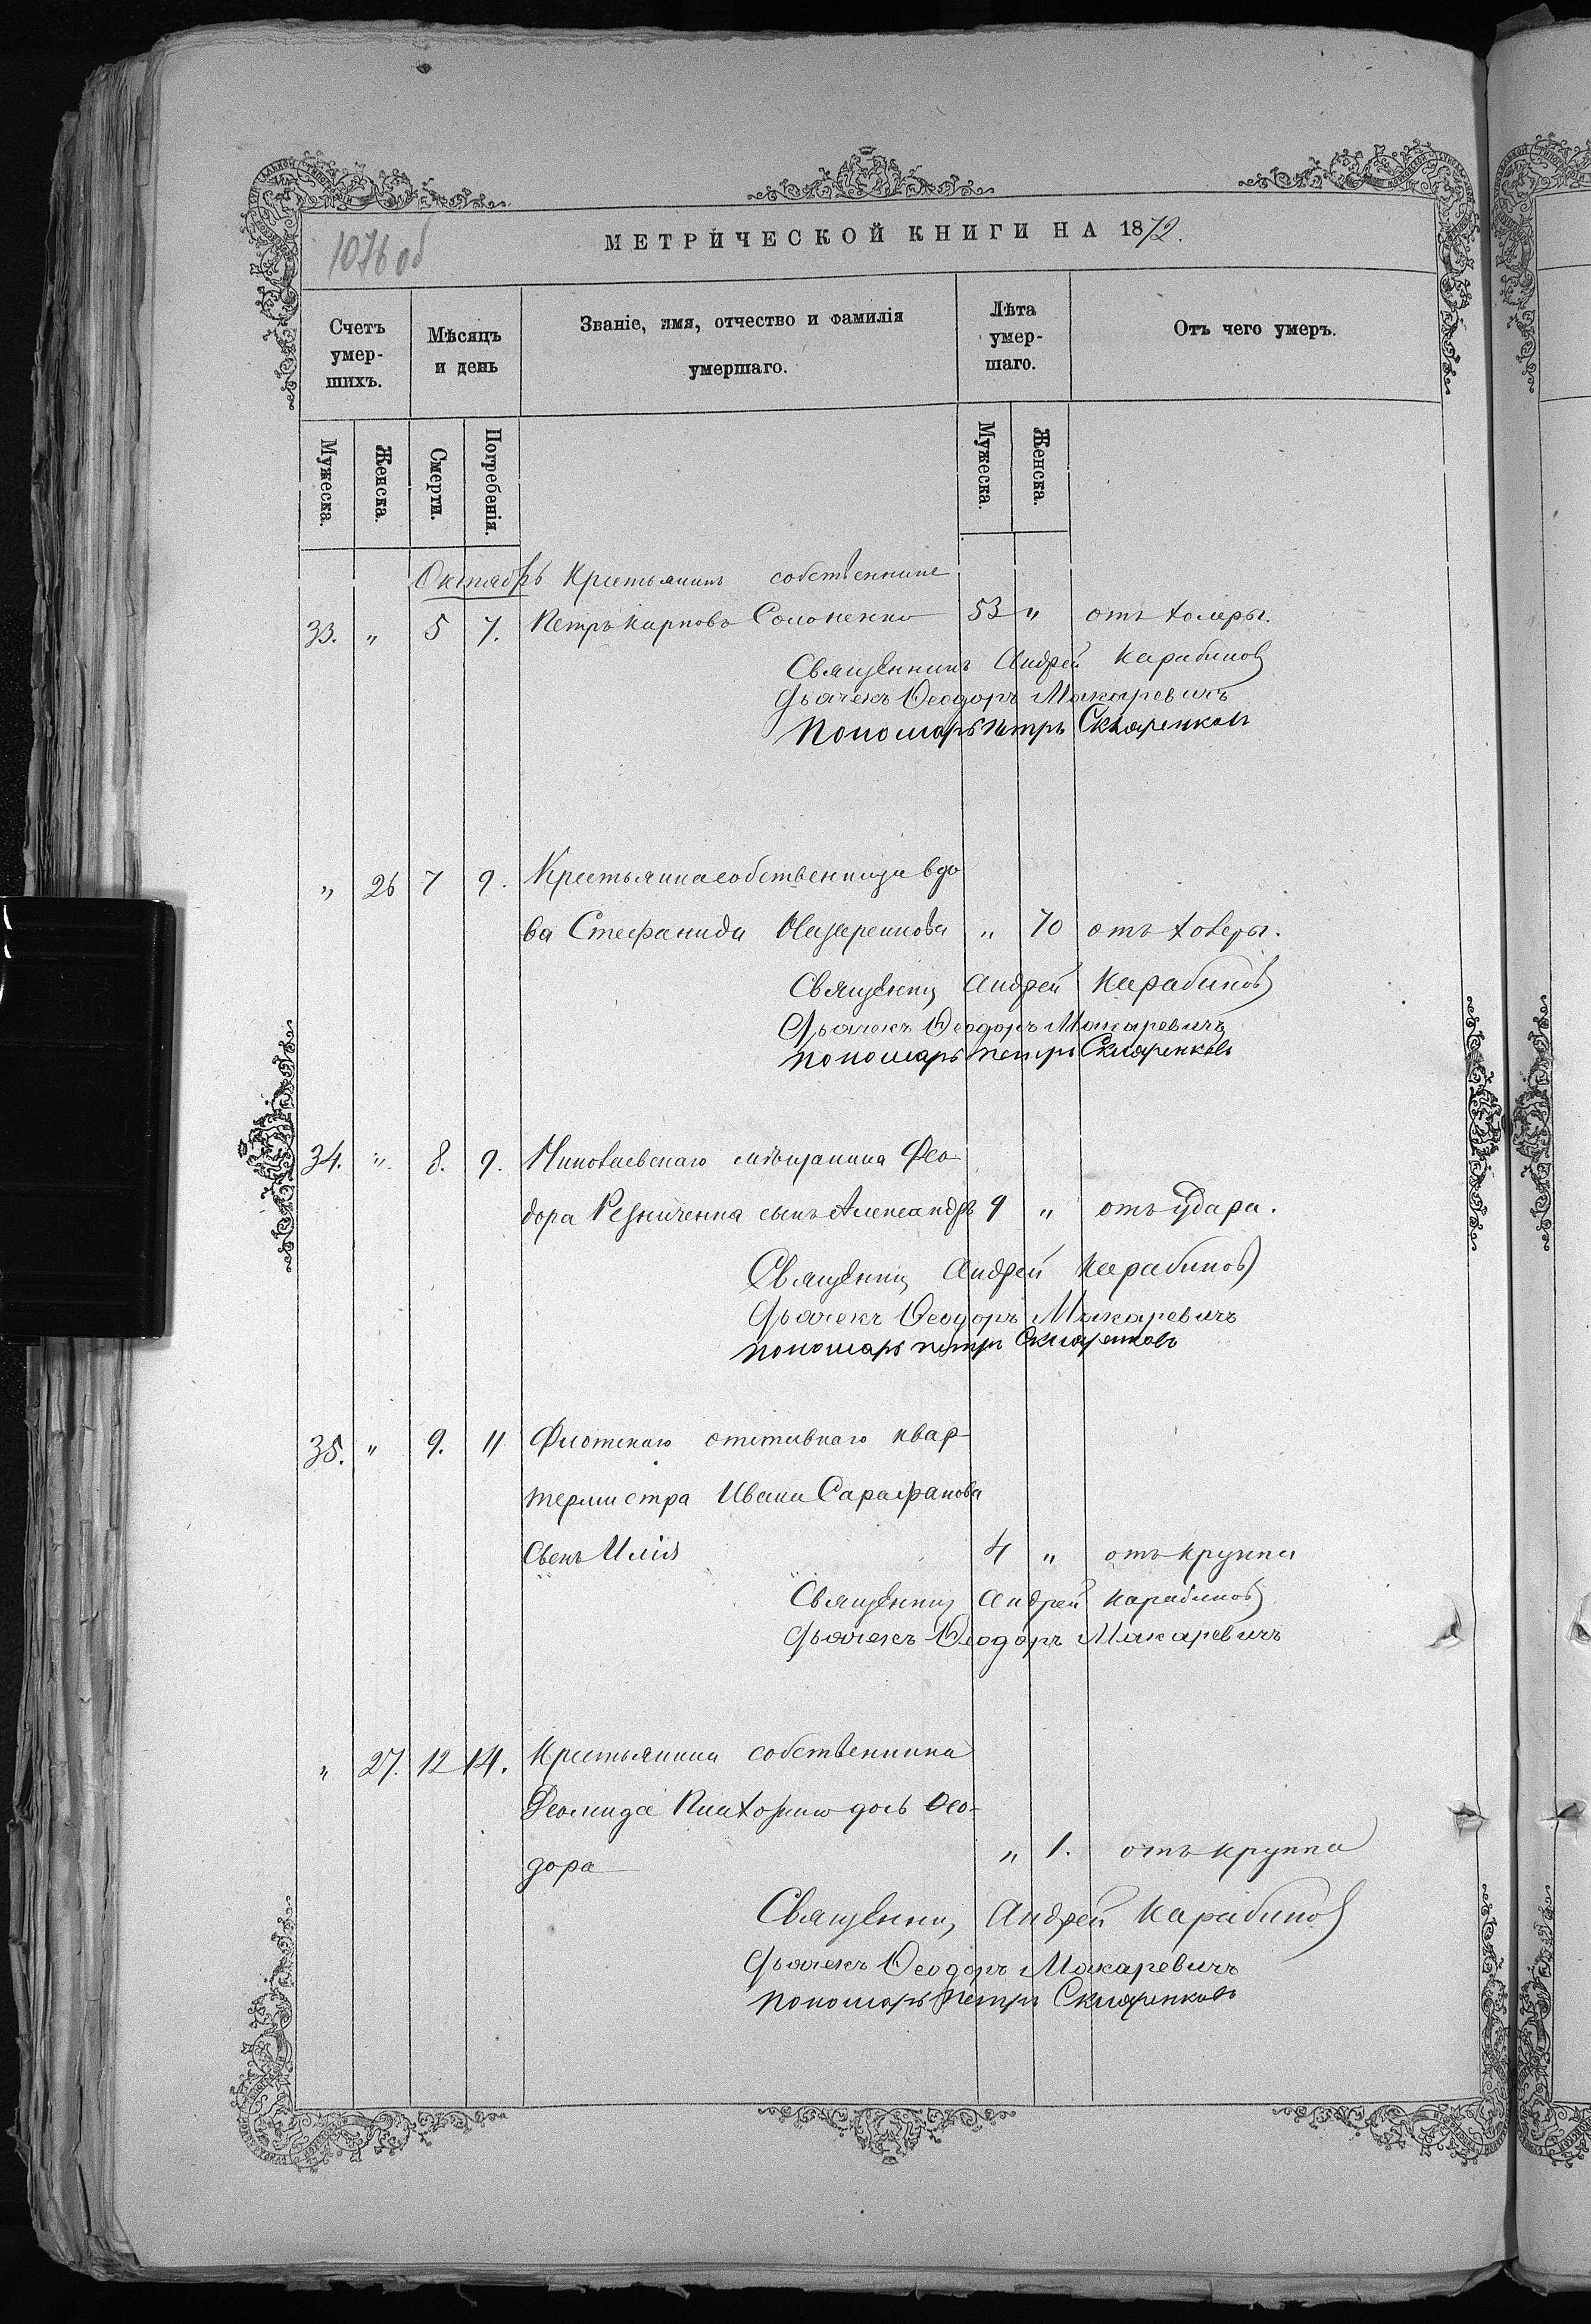 1076 об
МЕТРИЧЕСКОЙ КНИГИ НА 1872.
Счетъ умер-шихъ.
Мѣсяцъ и день
Званіе, имя, отчество и фамилія умершаго.
Лѣта умер-шаго.
Отъ чего умеръ.
Мужеска. Женска. Смерти. Погребенія. Мужеска. Женска.
Октябрь Крестьянинъ собственникъ
33. " 5 7. Петръ Карповъ Солоненко 53 " отъ холеры.
Священникъ Андрей Карабиновъ
Дьячекъ Ѳеодоръ Макаревичъ
Пономарь Петръ Скляренковъ
" 26 7 9. Крестьянка собственница вдо
ва Стефанида Назаренкова " 70 отъ холеры.
Священникъ Андрей Карабиновъ
Дьячекъ Ѳеодоръ Макаревичъ
Пономарь Петръ Скляренковъ
34. " 8. 9. Николаевскаго мѣщанина Фео
дора Резниченка сынъ Александръ 9 " отъ удара.
Священникъ Андрей Карабиновъ
Дьячекъ Ѳеодоръ Макаревичъ
Пономарь Петръ Скляренковъ
35. " 9. 11 Флотскаго отставнаго квар
термистра Ивана Сарафанова
Сынъ Илія 4 " отъ круппа
Священникъ Андрей Карабиновъ
Дьячекъ Ѳеодоръ Макаревичъ
" 27. 12 14. Крестьянина собственника
Деомида дочь Ѳео-
дора " 1. отъ круппа
Священникъ Андрей Карабиновъ
Дьячекъ Ѳеодоръ Макаревичъ
Пономарь Петръ Скляренковъ